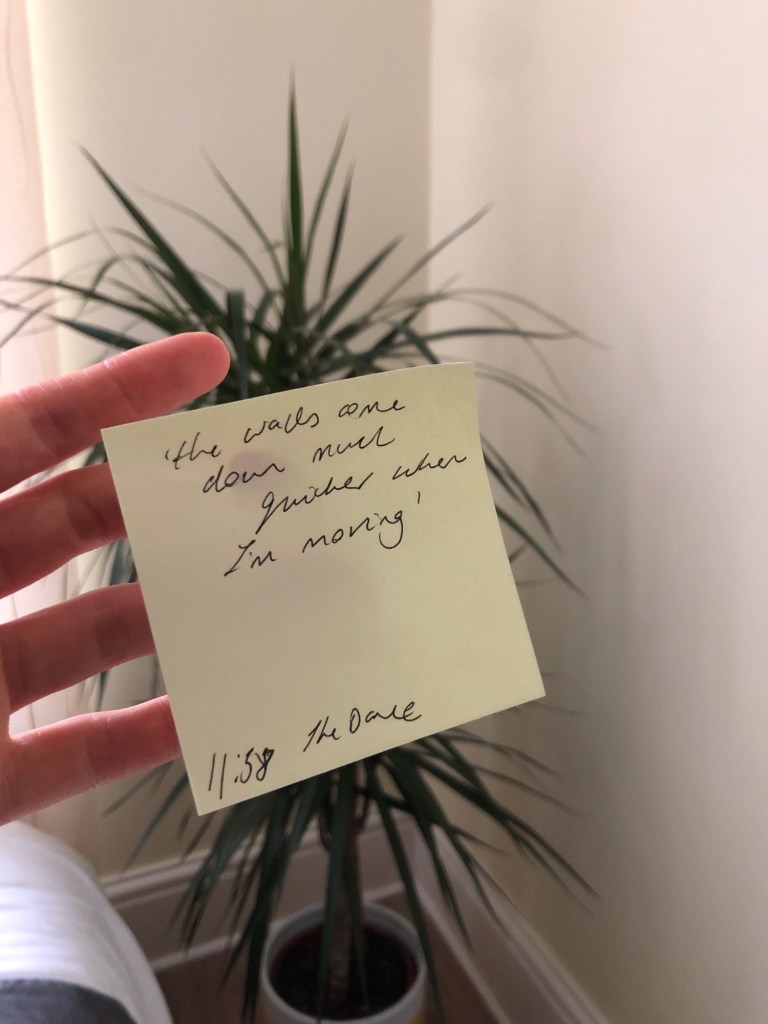 'the walls come
down much
quicker when
I'm moving'
11:58 The Dance